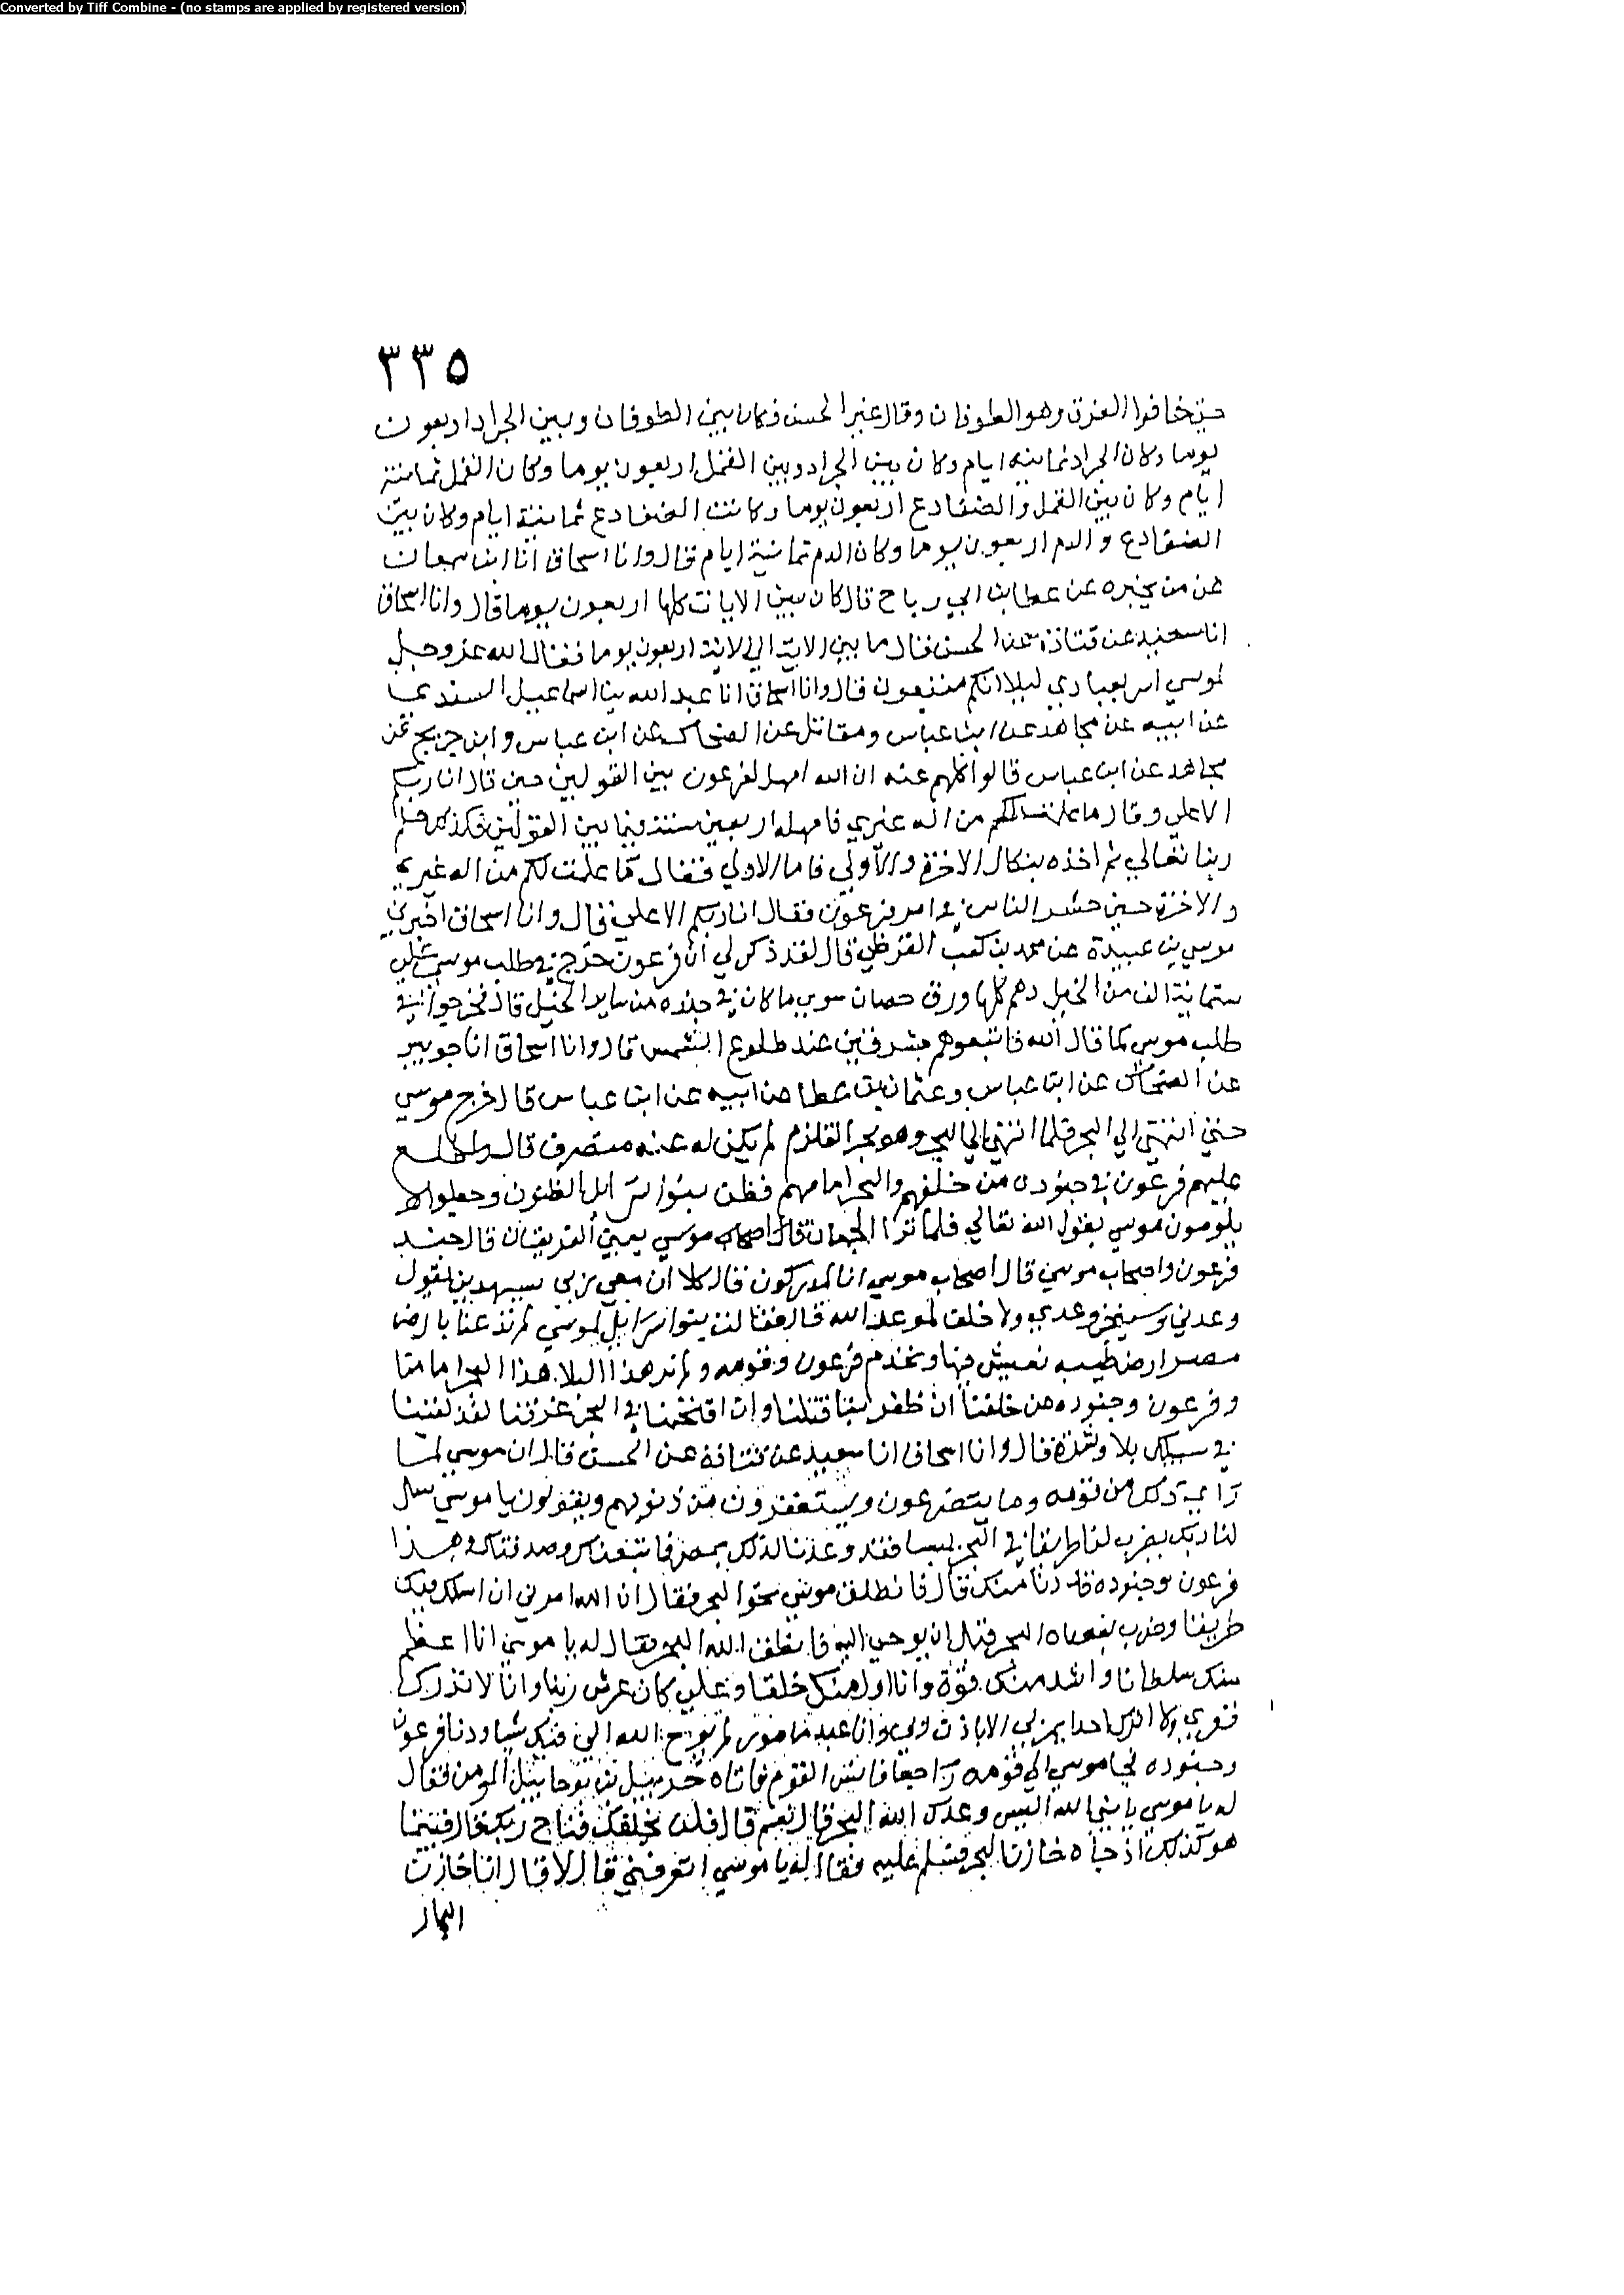 Converted by Tiff Combine - (no stamps are applied by registered version)
٣٣٥
حتى خافوا الغرق وهو الطوفان وقال غير الحسن فكان بين الطوفان وبين الجراد اربعون
يوما وكان الجراد ثمانية ايام وكان بين الجراد وبين القمل اربعون يوما وكان القمل ثمانية
ايام وكان بين القمل والضفادع اربعون يوما وكانت الضفادع ثمانية ايام وكان بين
الضفادع والدم اربعون يوما وكان الدم ثمانية ايام قال وانا اسحاق انا ابن سمعان
عن من يخبره عن عطا بن ابي رباح قال كان بين الايات كلها اربعون يوما قال وانا اسحاق
انا سعيد عن قتادة عن الحسن قال ما بين الاية الي الاية اربعون يوما فقال الله عز وجل
لموسي اسر بعبادي ليلا انكم متبعون قال وانا اسحاق انا عبد الله بن اسماعيل السندي
عن ابيه عن مجاهد عن ابن عباس ومقاتل عن الضحاك عن ابن عباس وابن جريج عن
مجاهد عن ابن عباس قالوا كلهم عنه ان الله امهل لفرعون بين القولين حين قال انا ربكم
الاعلي وقال ما علمت لكم من اله غيري فامهله اربعين سنة فيما بين القولين
ربنا تعالي ثم اخذه بنكال الاخرة والاولي فاما الاولي فقال ما علمت لكم من اله غيري
والاخرة حين حشر الناس فرعون فقال انا ربكم الاعلي قال وانا اسحاق اخبرني
موسي بن عبيدة عن محمد بن كعب القرظي قال لقد ذكر لي ان فرعون خرج في طلب موسي علي
ستمائة الف من الخيل دهم كلها ورق حصان سوي ما كان في جنده من ساير الخيل قال فخرجوا في
طلب موسي كما قال الله فاتبعوهم مشرقين عند طلوع الشمس قال وانا اسحاق انا جويبر
عن الضحاك عن ابن عباس وعثمان بن عطا عن ابيه عن ابن عباس قال فخرج موسي
حتى انتهي الي البحر فلما انتهي الي البحر وهو بحر القلزم لم يكن له عنه منصرف قال واطلع
عليهم فرعون في جنوده من خلفهم والبحر امامهم فظن بنوا اسرايل الظنون وجعلوا
يلومون موسي يقول الله تعالي فلما ترا الجمعان قال اصحاب موسي يعني الفريقان قال جند
فرعون واصحاب موسي قال اصحاب موسي انا لمدركون قال كلا ان معي ربي سيهدين يقول
وعدني وسينجز وعدي ولا خلف لموعد الله قال فقالت بنوا اسرايل لموسي لم تدعنا بارض
مصر ارض طيبه نعيش فيها ونخدم فرعون وقومه ولم نر هذا البلا هذا البحر امامنا
وفرعون وجنوده من خلفنا ان ظفر بنا قتلنا وان اقتحمنا في البحر غرقنا لقد لقينا
في سببك بلا وشدة قال وانا اسحاق انا سعيد عن قتادة عن الحسن قال ان موسي لما
راي ذلك من قومه وما يتضرعون ويستغفرون من ذنوبهم ويقولون يا موسي سل
لنا ربك يضرب لنا طريقا في البحر يبسا فقد وعدتنا ذلك بمصر فاتبعناك وصدقناك وهذا
فرعون وجنوده قد دنا منك قال فانطلق موسي نحو البحر فقال ان الله امرني ان اسلك فيك
طريقا وضرب بعصاه البحر قبل ان يوحي اليه فانطق الله البحر فقال له يا موسي انا اعظم
منك سلطانا واشد منك قوة وانا اول منك خلقا وعلي كان عرش ربنا وانا لا تدرك
قعري ولا اترك احدا يمر بي الا باذن ربي وانا عبد مامور لم يوح الله الي فيك شيا ودنا فرعون
وجنوده فجا موسي الي قومه راجعا فايس القوم فاتاه حزبيل بن يوحابيل المومن فقال
له يا موسي يا نبي الله اليس وعدك الله البحر قال نعم قال فلن يخلفك فناج ربك قال فبينما
هو كذلك اذ جاه خازن البحر فسلم عليه فقال له يا موسي اتعرفني قال لا قال انا خازن
البحار